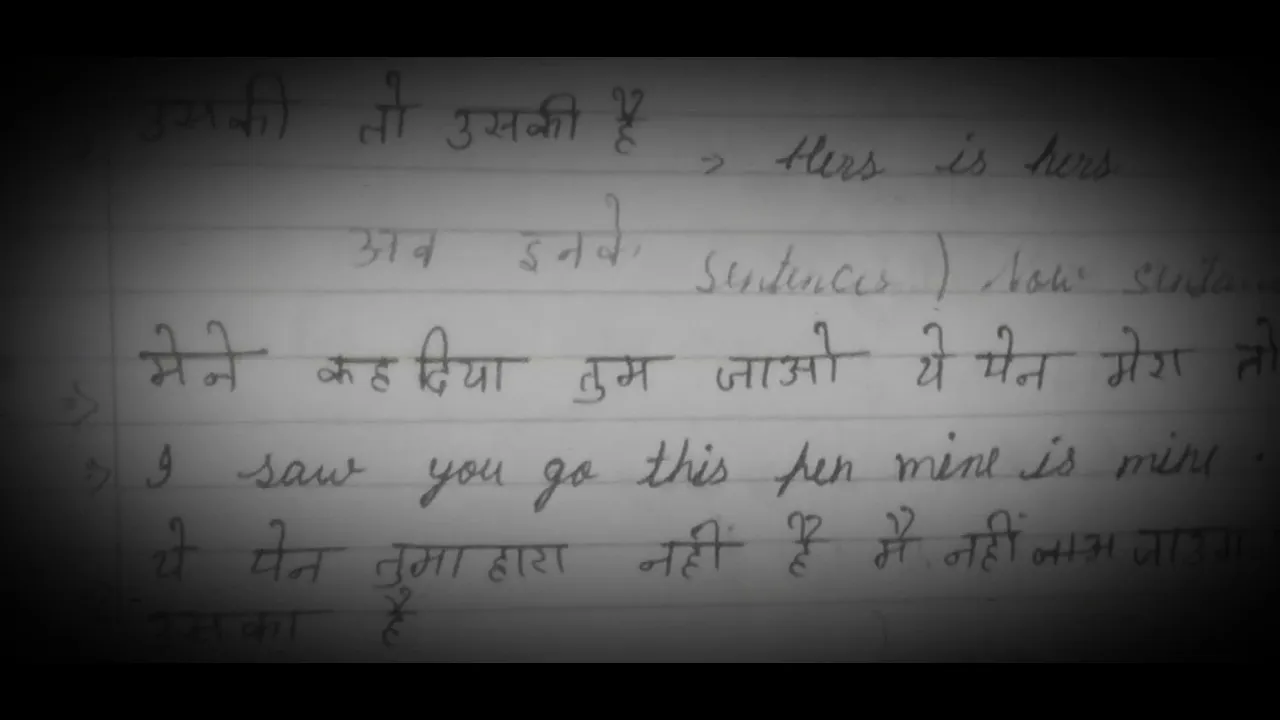 उसकी तो उसकी है
⇒ Hers is hers
अब इनके sentences ) Now
मेने कह दिया तुम जाओ ये पेन मेरा तो
⇒ I saw you go this pen mine is mine .
ये पेन तुमाहारा नहीं है मै नहीं जाउगा
उसका है